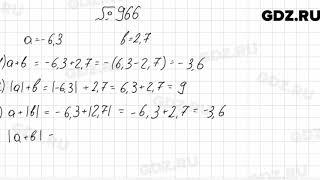 №966
GDZ.RU
a=-6,3 в=2,7
)a+в = -6,3+2,7 = -(6,3-2,7) = -3,6
) |a|+в = |-6,3| + 2,7 = 6,3+2,7 = 9
) a+|в| = -6,3+|2,7| = -6,3+2,7 = -3,6
|a+в| =
GDZ.RU